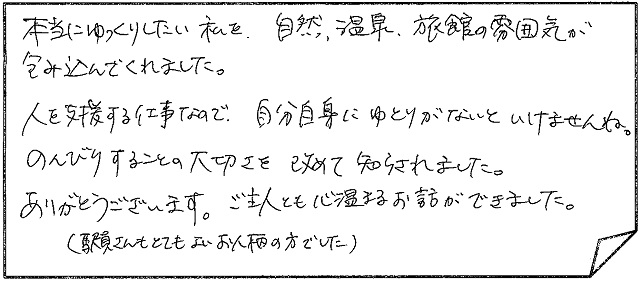 本当にゆっくりしたい私を、自然、温泉、旅館の雰囲気が
包み込んでくれました。
人を支援する仕事なので、自分自身にゆとりがないといけませんね。
のんびりすることの大切さを改めて知らされました。
ありがとうございます。ご主人とも心温まるお話ができました。
(駅員さんもとてもよいお人柄の方でした)